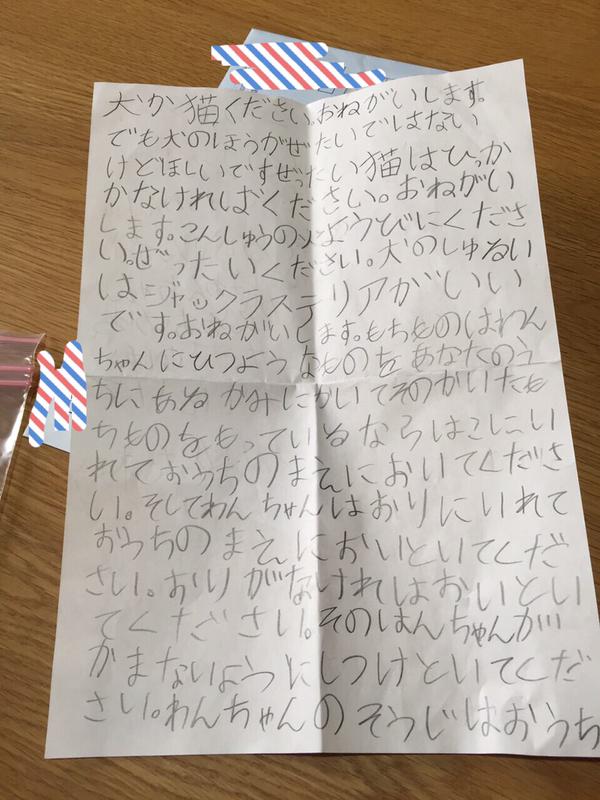 犬か猫ください。おねがいします。
でも犬のほうがぜたいではない
けどほしいですぜったい猫はひっか
かなければください。おねがい
します。こんしゅうの火ようびにくださ
い。ぜったいください。犬のしゅるい
はジャックラステリアがいい
です。おねがいします。もちものはわん
ちゃんにひつようなものをあなたのう
ちにあるかみにかいてそのかいたも
ちものをもっているならはこにい
れておうちのまえにおいてくださ
い。そしてわんちゃんはおりにいれて
おうちのまえにおいといてくだ
さい。おりがなければおいとい
てください。そのはんちゃんが
かまないようにしつけといてくだ
さい。わんちゃんのそうじはおうち